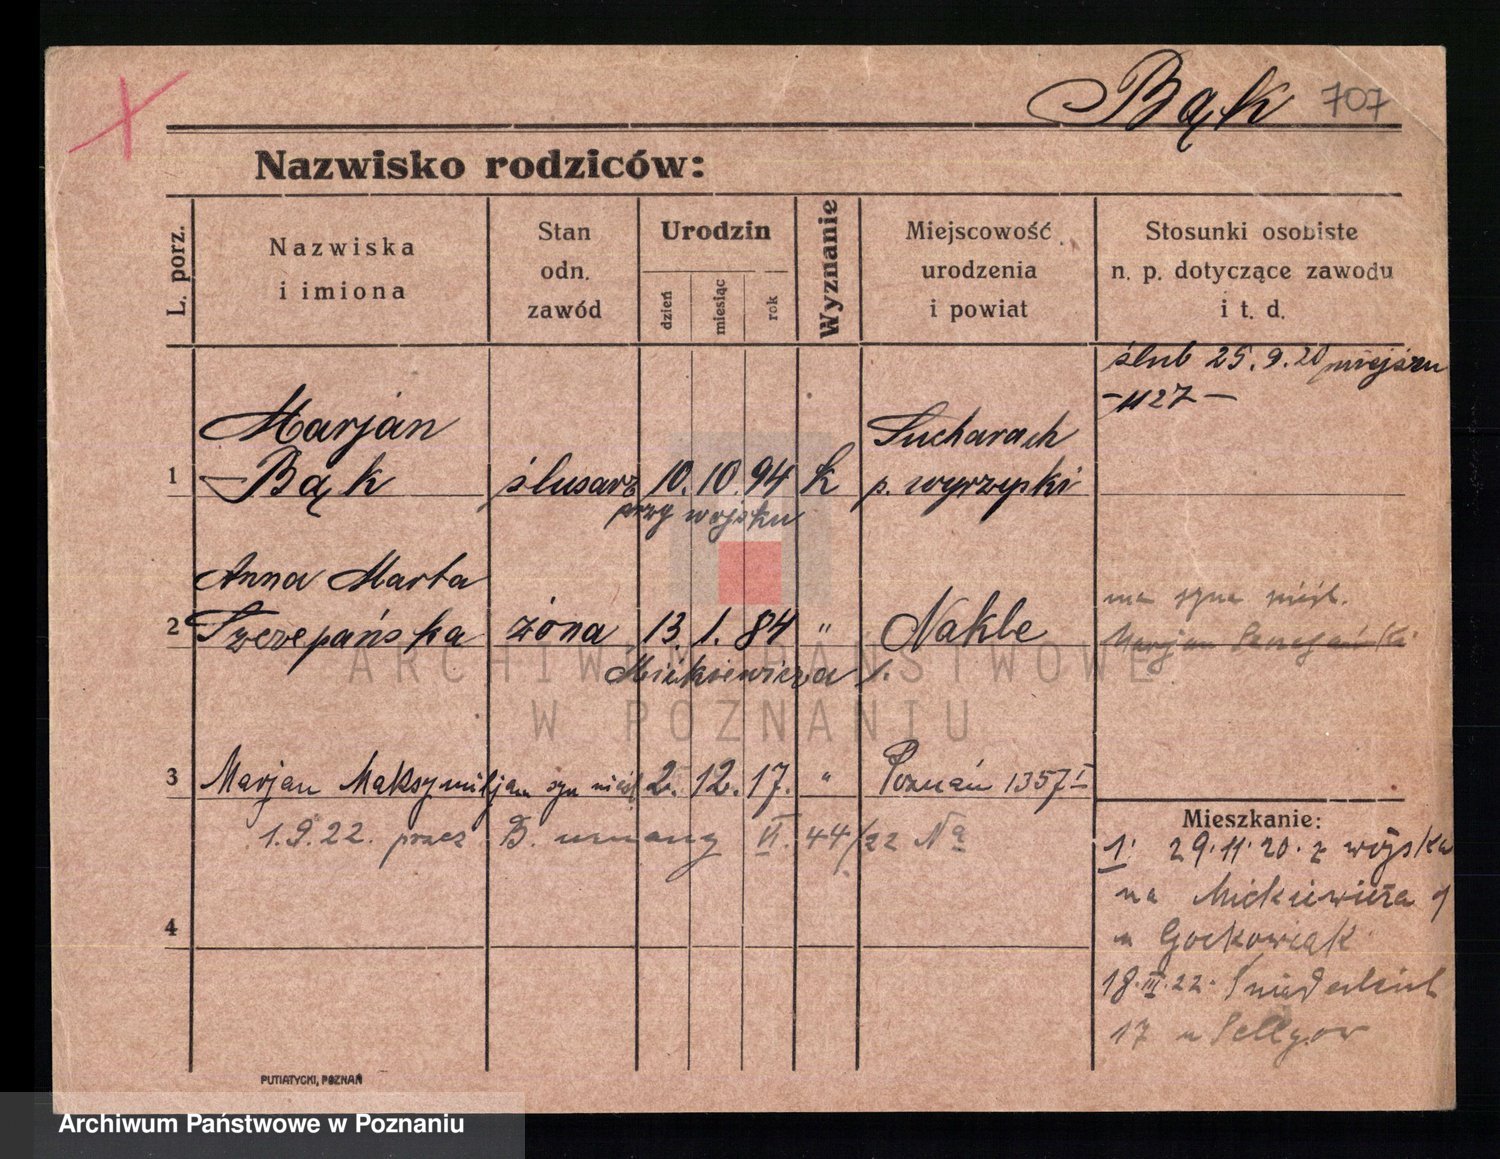 Bąk 707
Nazwisko rodziców:
L. porz.
Nazwiska
i imiona
Stan
odn.
zawód
Urodzin
dzień
miesiąc
rok
Wyznanie
Miejscowość
urodzenia
i powiat
Stosunki osobiste
n. p. dotyczące zawodu
i t. d.
ślub 25.9.20
1127
Marjan
1 Bąk ślusarz 10. 10. 94 k
przy wojsku
Sucharach
p. wyrzyski
Anna Marta
2 Szczepańska żona 13. 1. 84 " Nakle
Mickiewicza 1.
ma syna nieśl.
Marjan
3 Marjan Maksymiljan syn nieśl 2. 12. 17. " Poznań 1357 I
1.9.22. przez B. uznany VI. 44/22 Na
4
Mieszkanie:
1. 29.11.20. z wojska
na Mickiewicza 1
u Gockowiak
18.III.22. Śniadeckich
17 u
PUTIATYCKI, POZNAŃ
ARCHIWUM PAŃSTWOWE
W POZNANIU
Archiwum Państwowe w Poznaniu